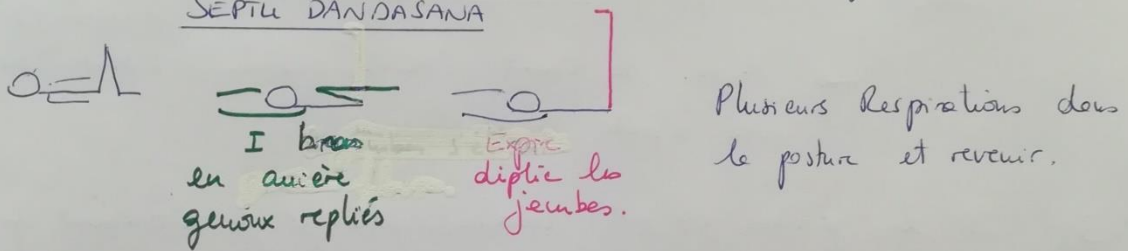 DANDASANA
I bras
en arrière
genoux repliés
Expire
déplie les
jambes.
Plusieurs Respirations dans
la posture et revenir.